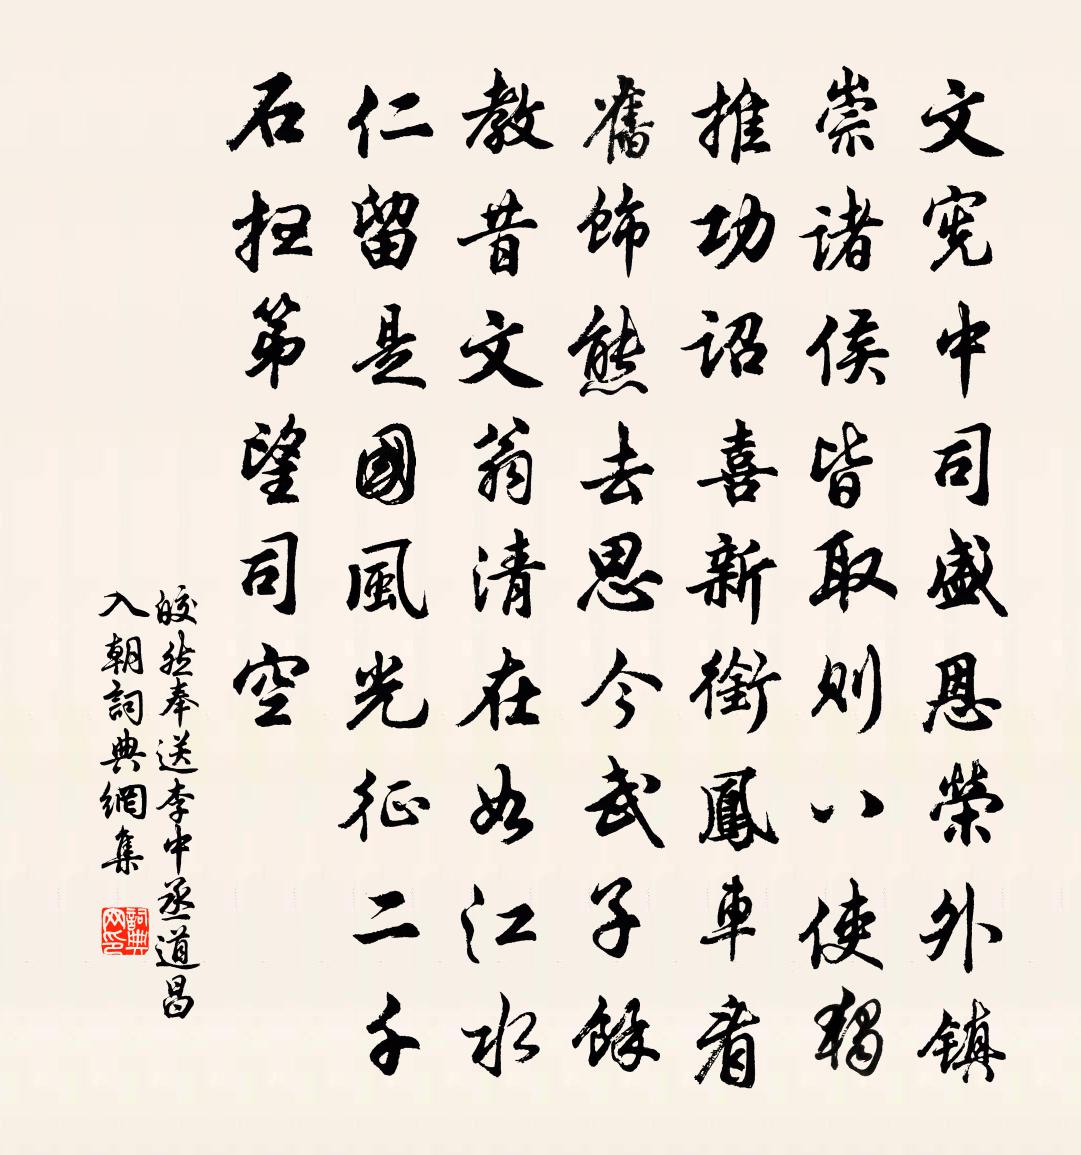 文宪中司盛恩榮外镇
崇诸侯皆取则八使独
推功诏喜新銜鳳車看
舊饰熊去思今武子餘
教昔文翁清在如江水
仁留是國風光征二千
石扫第望司空
皎然奉送李中丞道昌
入朝詞典網集
詞典网印